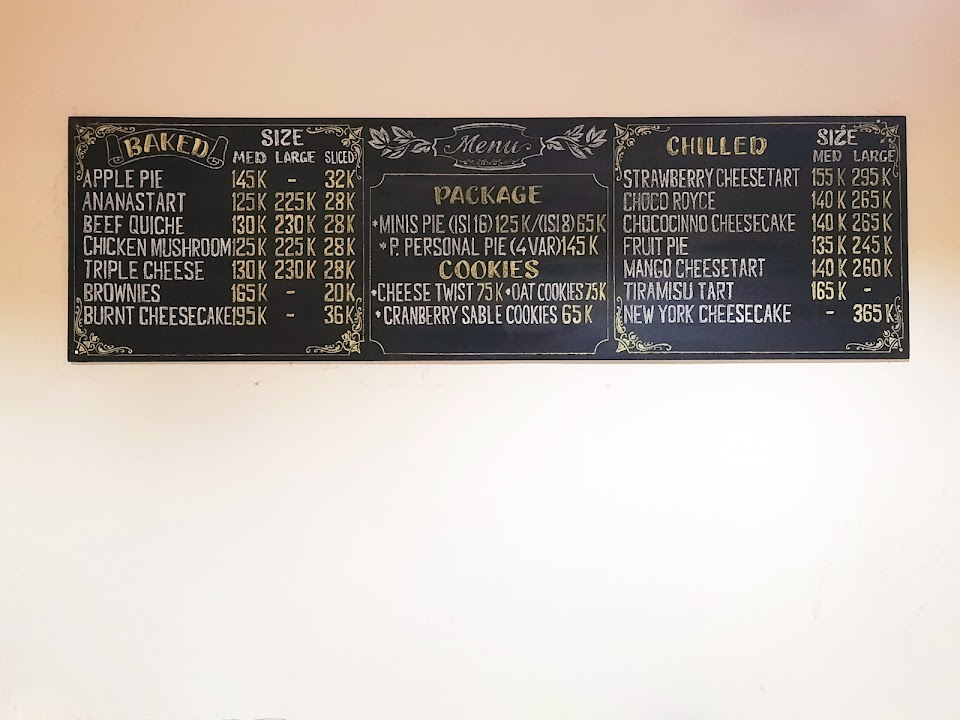 BAKED SIZE
MED LARGE SLICED
APPLE PIE 145K - 32K
ANANASTART 125K 225K 28K
BEEF QUICHE 130K 230K 28K
CHICKEN MUSHROOM 125K 225K 28K
TRIPLE CHEESE 130K 230K 28K
BROWNIES 165K - 20K
BURNT CHEESECAKE 195K - 36K
Menu
PACKAGE
*MINIS PIE (ISI 16) 125K/(ISI 8) 65K
*P. PERSONAL PIE (4 VAR) 145K
COOKIES
*CHEESE TWIST 75K *OAT COOKIES 75K
*CRANBERRY SABLE COOKIES 65K
CHILLED SIZE
MED LARGE
STRAWBERRY CHEESETART 155K 295K
CHOCO ROYCE 140K 265K
CHOCOCINNO CHEESECAKE 140K 265K
FRUIT PIE 135K 245K
MANGO CHEESETART 140K 260K
TIRAMISU TART 165K -
NEW YORK CHEESECAKE - 365K